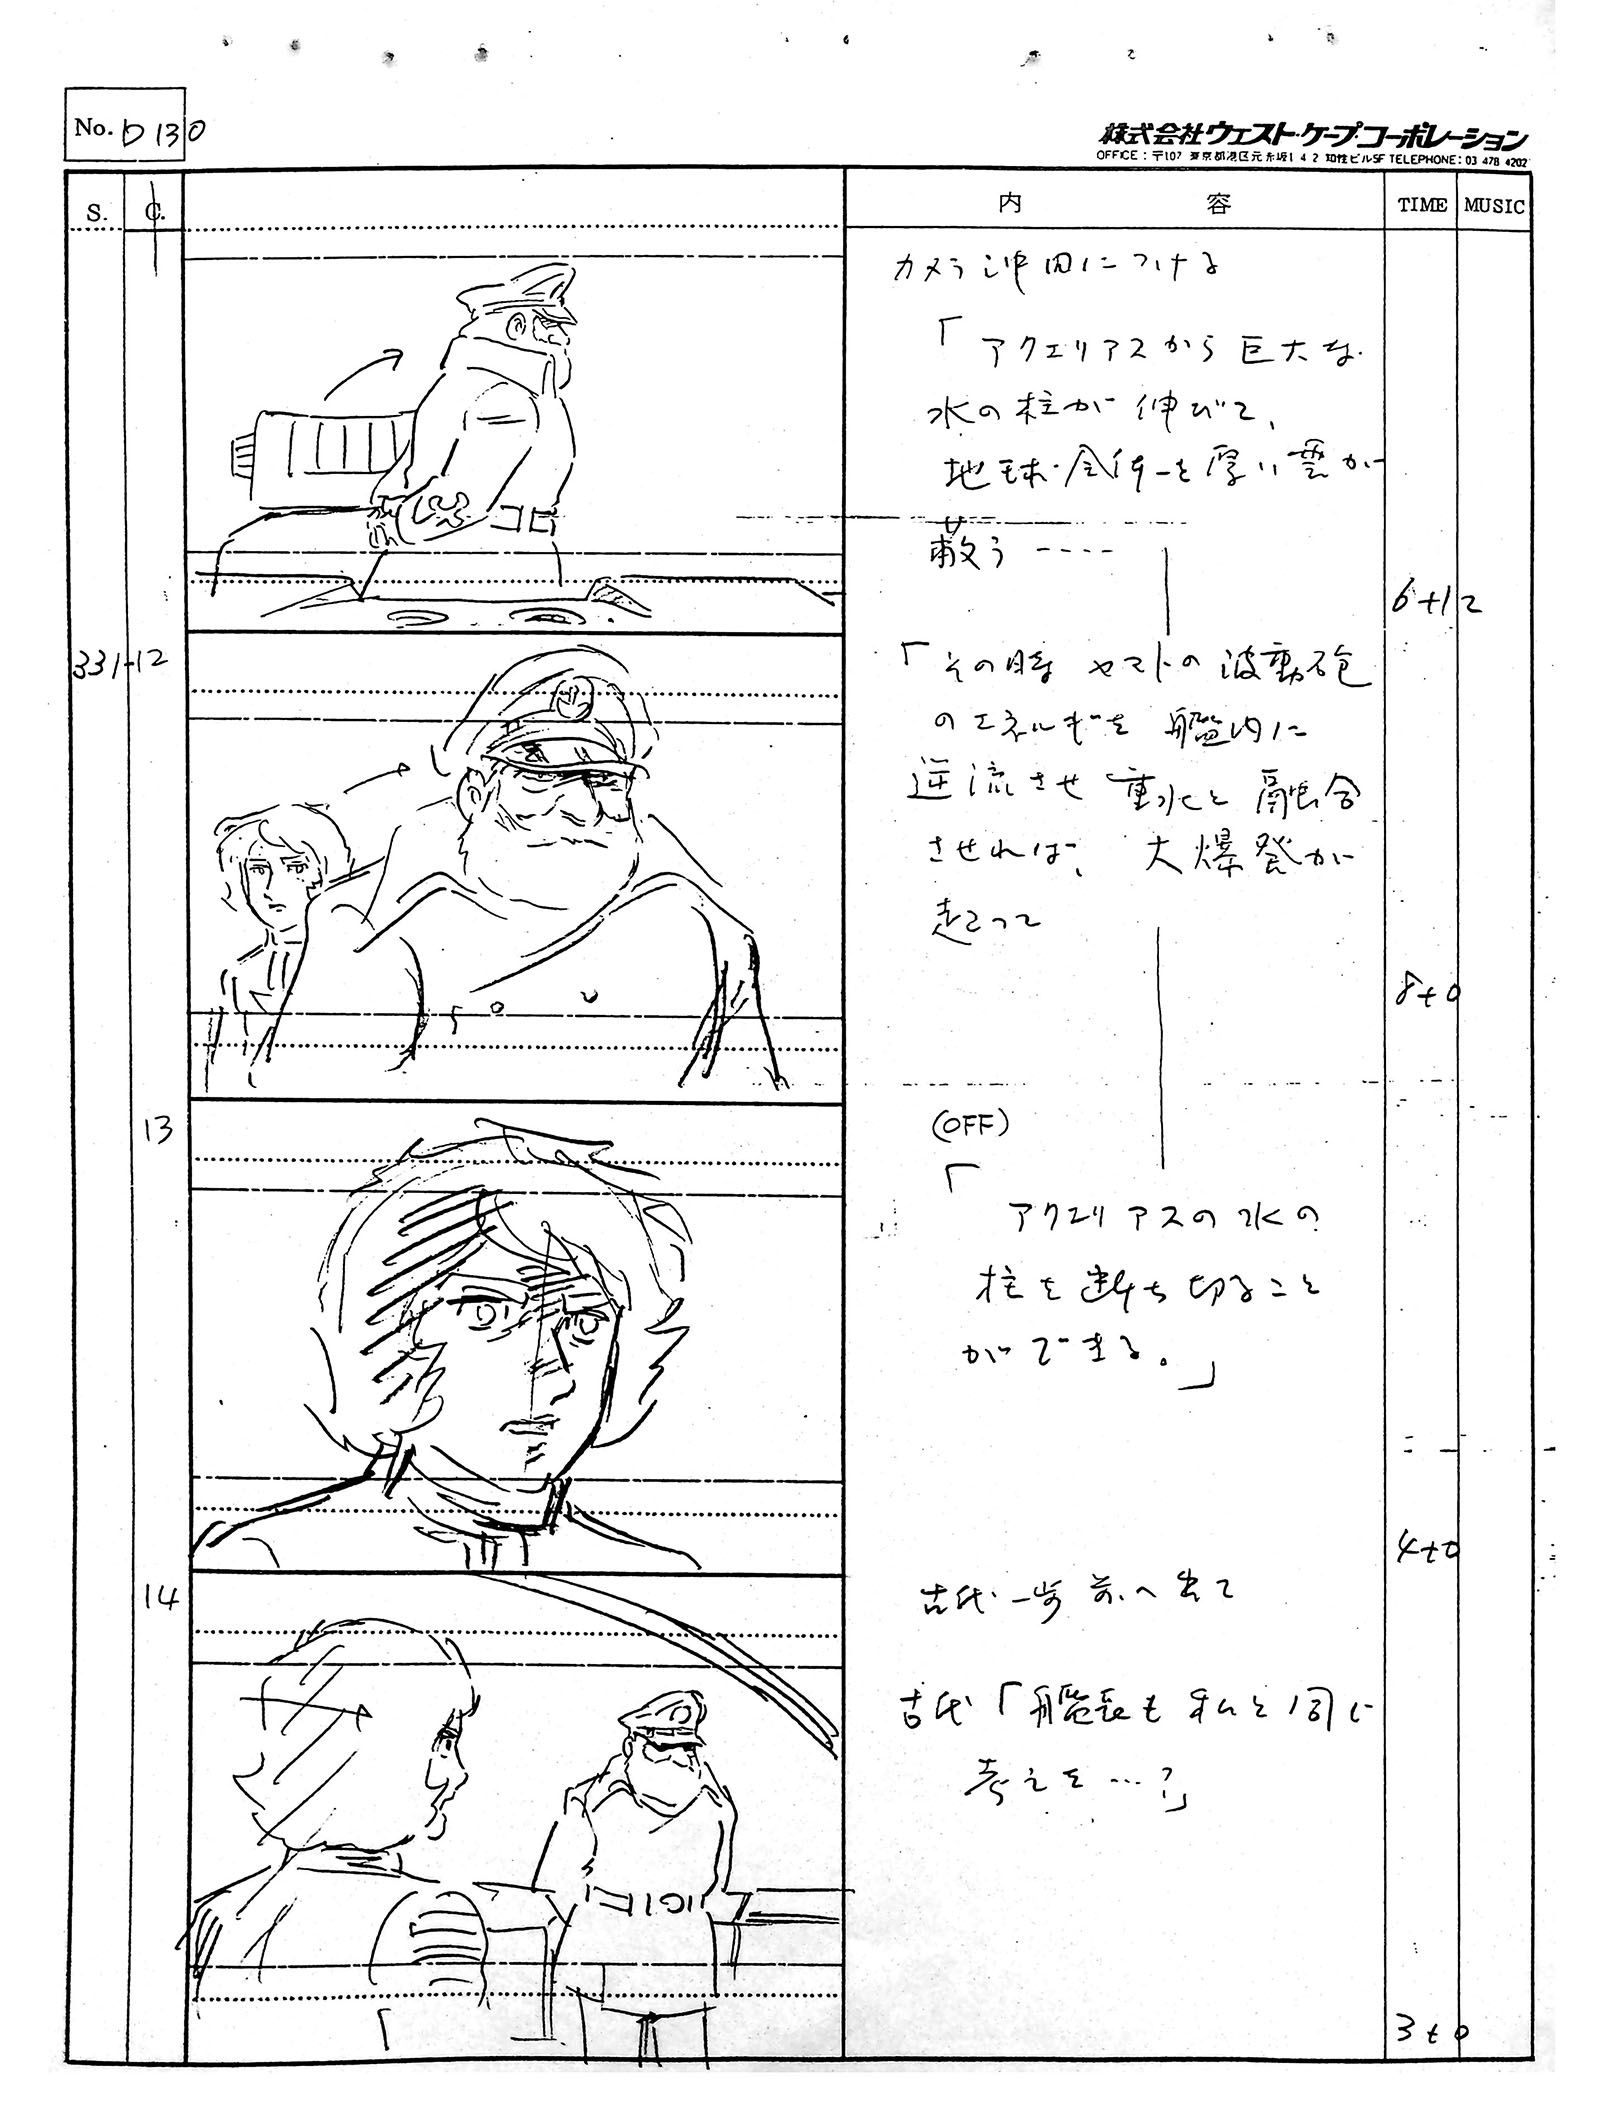 No. D130
株式会社ウェスト・ケープ・コーポレーション
OFFICE : 〒107 東京都港区元赤坂1 4 2 知性ビル5F TELEPHONE : 03 478 4202
S. C. 内容 TIME MUSIC
カメラ沖田につける
「アクエリアスから巨大な
水の柱が伸びて、
地球全体を厚い雲が
蔽う ----
6+12
331-12
「その時ヤマトの波動砲
のエネルギを艦内に
逆流させ重水と融合
させれば、大爆発が
起こって
8+0
13
(OFF)
「
アクエリアスの水の
柱を断ち切ること
ができる。」
4+0
14
古代一歩前へ出て
古代「艦長も私と同じ
考えを…?」
3+0